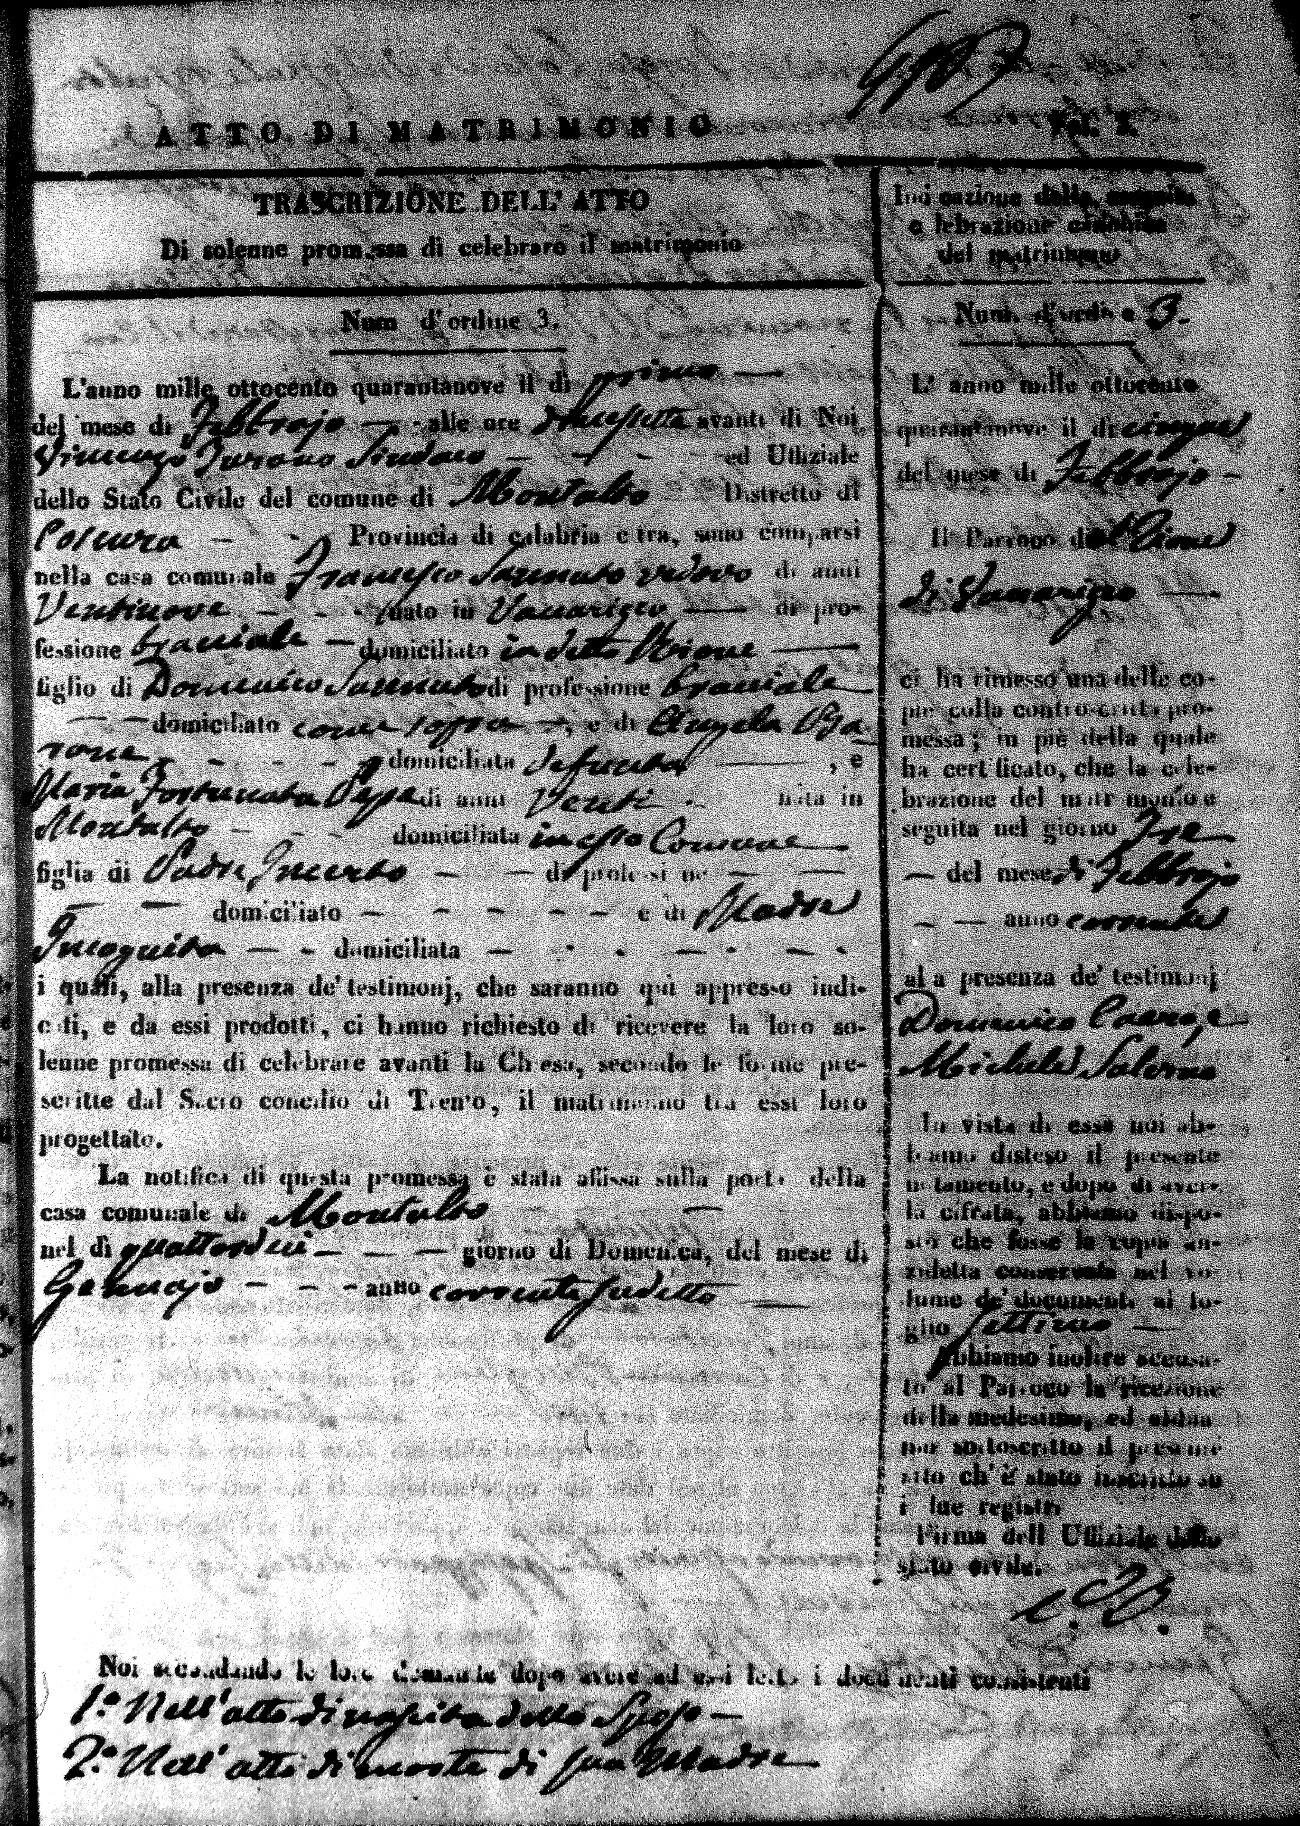 ATTO DI MATRIMONIO
Fol. 2.
TRASCRIZIONE DELL' ATTO
Di solenne promessa di celebrare il matrimonio
Num d'ordine 3.
L'anno mille ottocento quarantanove il dì primo —
del mese di Febbrajo — alle ore avanti di Noi
Vincenzo Sindaco — ed Uffiziale
dello Stato Civile del comune di Montalto Distretto di
Cosenza — Provincia di calabria citra, sono comparsi
nella casa comunale Francesco vedovo di anni
Ventinove — nato in Vaccarizzo — di pro-
fessione bracciale — domiciliato in detto Rione —
figlio di Domenico di professione bracciale
— domiciliato come sopra —, e di Angela
rone — domiciliata defunta —, e
Maria Fortunata Pepe di anni Venti nata in
Montalto — domiciliata in esso Comune —
figlia di Padre Incerto — di professione —
— domiciliato — e di Madre
Incognita — domiciliata —
i quali, alla presenza de' testimonj, che saranno qui appresso indi-
cati, e da essi prodotti, ci hanno richiesto di ricevere la loro so-
lenne promessa di celebrare avanti la Chiesa, secondo le forme pre-
scritte dal Sacro concilio di Trento, il matrimonio tra essi loro
progettato.
La notifica di questa promessa è stata affissa sulla porta della
casa comunale di Montalto —
nel dì quattordeci — giorno di Domenica, del mese di
Gennajo — anno corrente sudetto —
Noi secondando le loro domanda dopo avere ad essi letto i documenti consistenti
1.° Nell'atto di nascita dello Sposo —
2.° Nell'atto di morte di sua Madre —
Indicazione della seguita
celebrazione
del matrimonio
Num. d'ordine 3.
L' anno mille ottocento
quarantanove il dì cinque
del mese di Febbrajo —
Il Parroco del Rione
di Vaccarizzo —
ci ha rimesso una delle co-
pie colla controscritta pro-
messa; in piè della quale
ha certificato, che la cele-
brazione del matrimonio è
seguita nel giorno Tre —
— del mese di Febbrajo
— anno corrente
alla presenza de' testimonj
Domenico
Michele Salerno
In vista di essa noi ab-
biamo disteso il presente
notamento, e dopo di aver-
la cifrata, abbiamo dispo-
sto che fosse la copia an-
zidetta conservata nel vo-
lume de' documenti al fo-
glio settimo —
Abbiamo inoltre accusa-
to al Parroco la ricezione
della medesima, ed abbia
mo sottoscritto il presente
atto ch' è stato inscritto su
i due registri
Firma dell Uffiziale dello
stato civile.